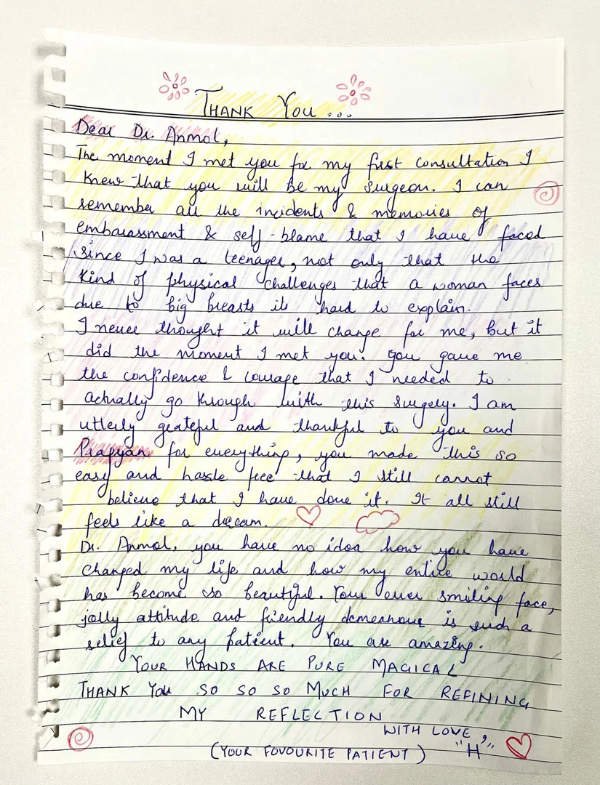 THANK YOU...
Dear Dr. Anmol,
The moment I met you for my first consultation I
knew that you will be my surgeon. I can
remember all the incidents & memories of
embarassment & self-blame that I have faced
since I was a teenager, not only that the
kind of physical challenges that a woman faces
due to big breasts its hard to explain.
I never thought it will change for me, but it
did the moment I met you. You gave me
the confidence & courage that I needed to
actually go through with this surgery. I am
utterly grateful and thankful to you and
Pragyan for everything, you made this so
easy and hassle free that I still cannot
believe that I have done it. It all still
feels like a dream.
Dr. Anmol, you have no idea how you have
changed my life and how my entire world
has become so beautiful. Your ever smiling face,
jolly attitude and friendly demeanour is such a
relief to any patient. You are amazing.
YOUR HANDS ARE PURE MAGICAL
THANK YOU SO SO SO MUCH FOR REFINING
MY REFLECTION
WITH LOVE,
(YOUR FOVOURITE PATIENT) "H"